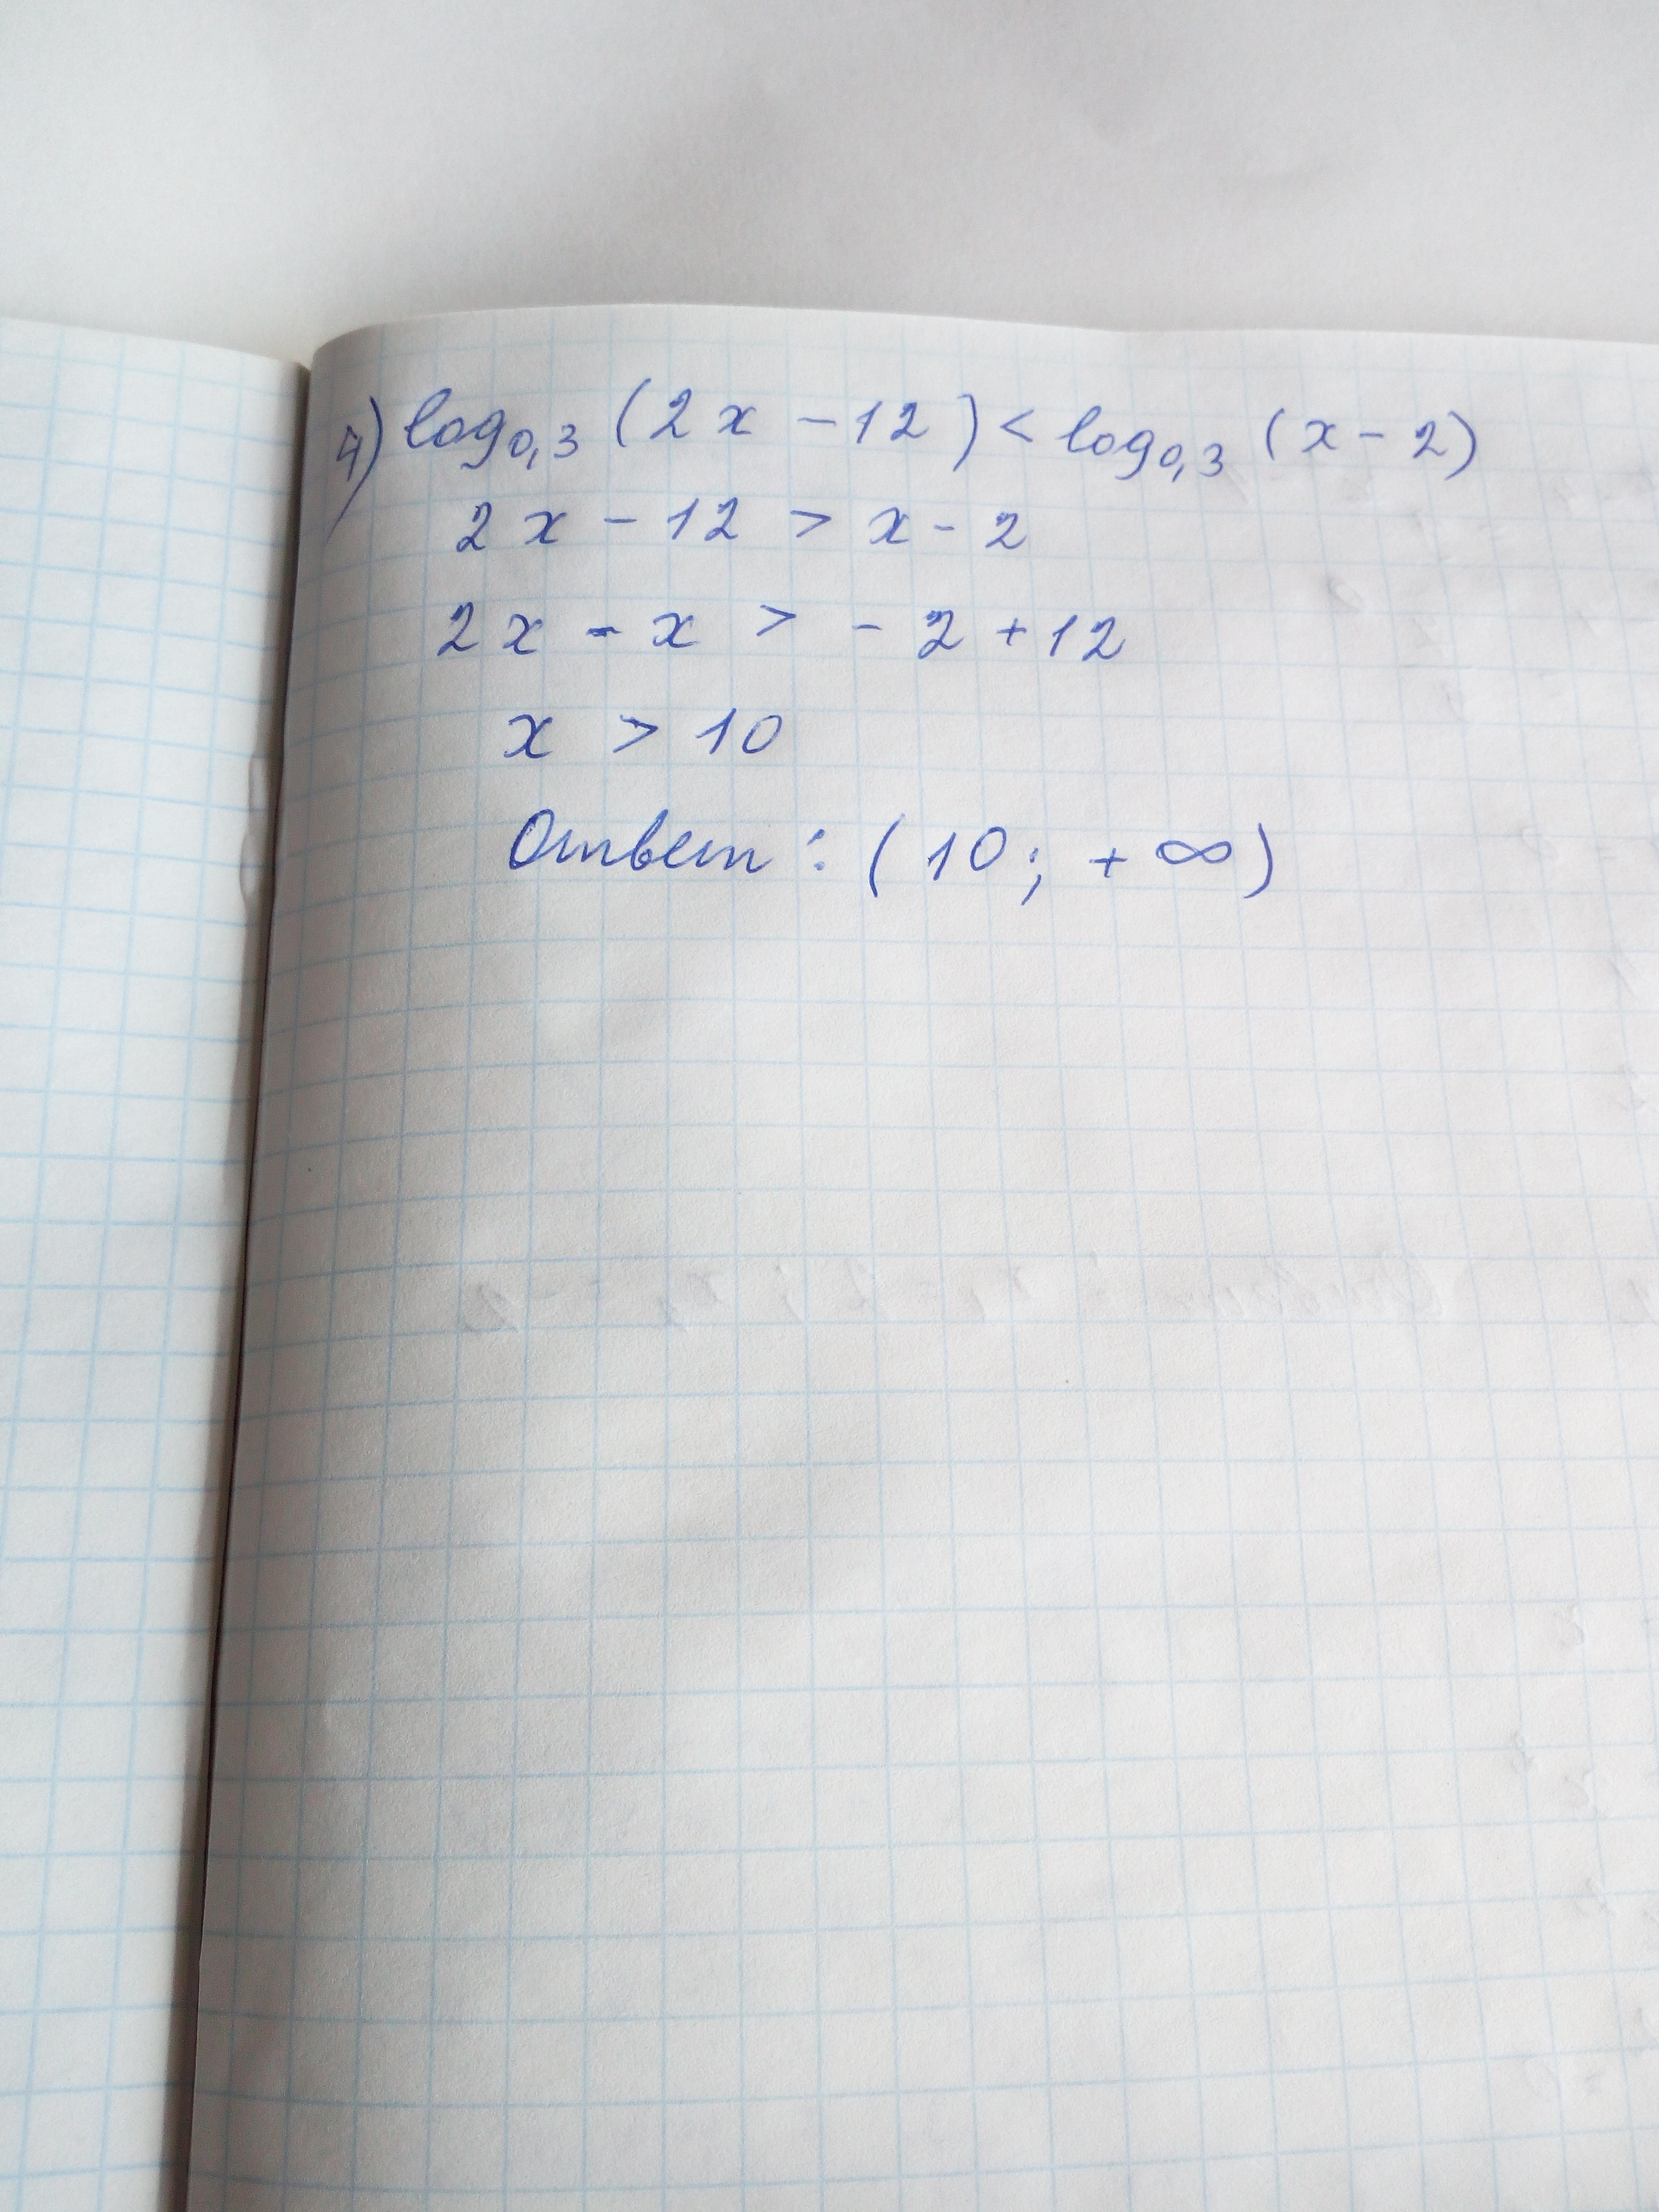 4) log₀,₃ (2x - 12) < log₀,₃ (x - 2)
2x - 12 > x - 2
2x - x > - 2 + 12
x > 10
Ответ: (10; + ∞)